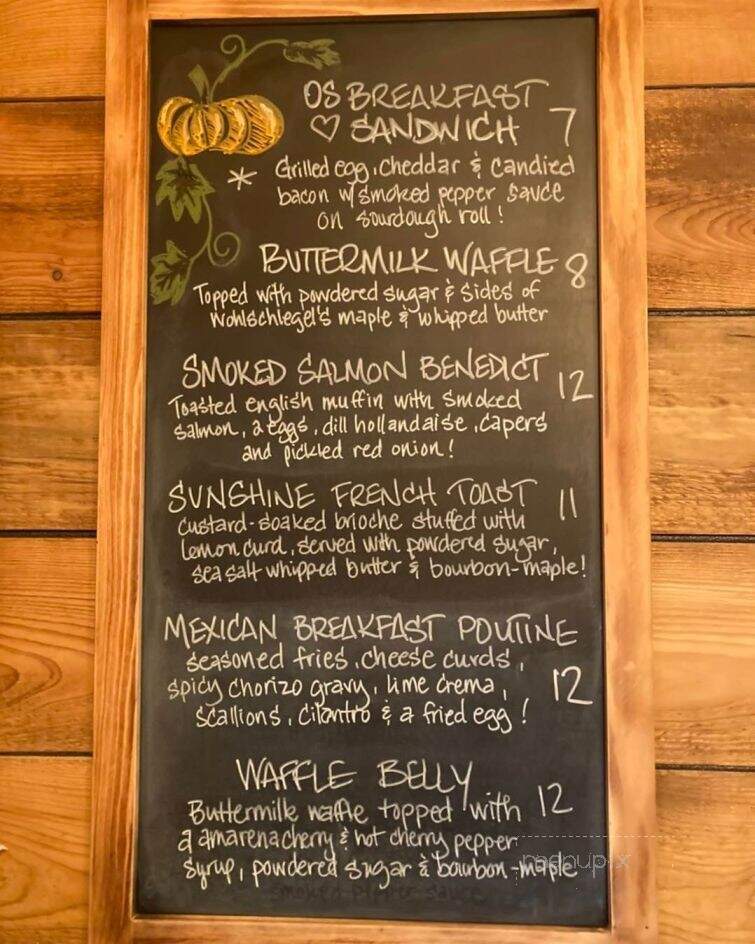 OS BREAKFAST
♡ SANDWICH 7
* Grilled egg, cheddar & candied
bacon w/ smoked pepper sauce
on sourdough roll!
BUTTERMILK WAFFLE 8
Topped with powdered sugar & sides of
Wohlschlegel's maple & whipped butter
SMOKED SALMON BENEDICT 12
Toasted english muffin with smoked
salmon, 2 eggs, dill hollandaise, capers
and pickled red onion!
SUNSHINE FRENCH TOAST 11
custard-soaked brioche stuffed with
lemon curd, served with powdered sugar,
sea salt whipped butter & bourbon-maple!
MEXICAN BREAKFAST POUTINE
seasoned fries, cheese curds,
spicy chorizo gravy, lime crema, 12
scallions, cilantro & a fried egg!
WAFFLE BELLY
Buttermilk waffle topped with 12
a amarena cherry & hot cherry pepper
syrup, powdered sugar & bourbon-maple
menupix
smoked pepper sauce